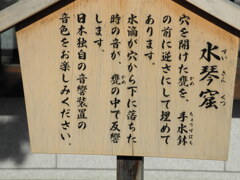 水琴窟
すいきんくつ
穴を開けた甕を、手水鉢
かめ
ちょうずばち
の前に逆さにして埋めて
あります。
水滴が穴から下に落ちた
時の音が、甕の中で反響
かめ
します。
日本独自の音響装置の
音色をお楽しみください。